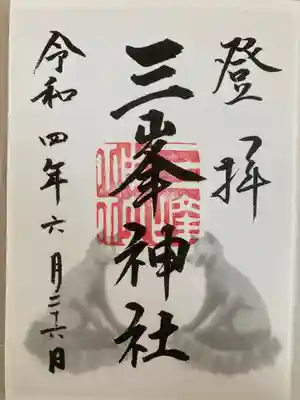 登拝
三峯神社
三峰神社
令和四年六月二十六日